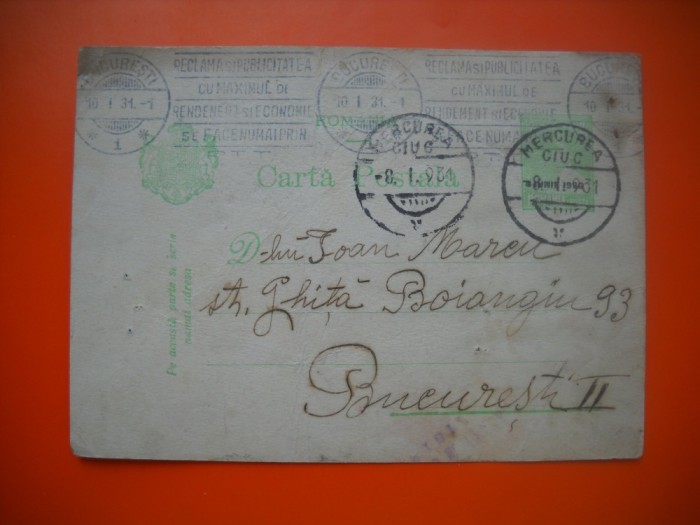 BUCUREȘTI
10 I 31.-1
* 1 *
RECLAMA SI PUBLICITATEA
CU MAXIMUL DE
RENDEMENT SI ECONOMIE
SE FACE NUMAI PRIN
BUCUREȘTI
10 I 31.-1
RECLAMA SI PUBLICITATEA
CU MAXIMUL DE
RENDEMENT SI ECONOMIE
FACE NUMAI
BUCUREȘTI
10 I 31
ROM
Carta Postala
MERCUREA
CIUC
-8. I. 931
MERCUREA
CIUC
-8. I. 931
D-lui Ioan Marcu
str. Ghiță Boiangiu 93
București II
Pe această parte se scrie
numai adresa